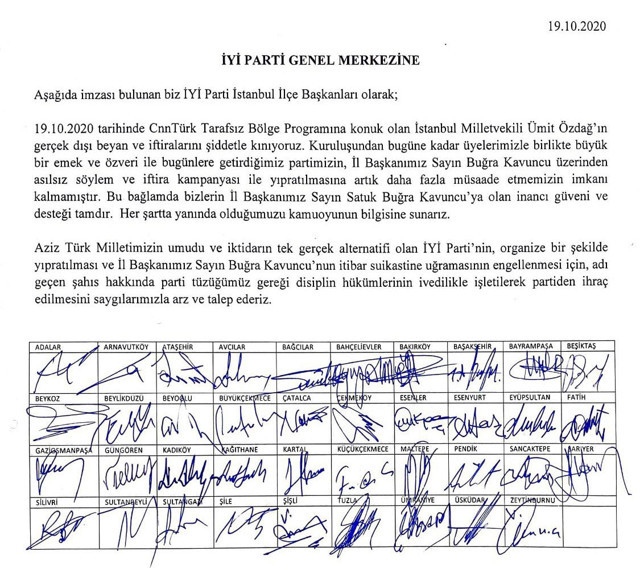 19.10.2020
İYİ PARTİ GENEL MERKEZİNE
Aşağıda imzası bulunan biz İYİ Parti İstanbul İlçe Başkanları olarak;
19.10.2020 tarihinde CnnTürk Tarafsız Bölge Programına konuk olan İstanbul Milletvekili Ümit Özdağ'ın
gerçek dışı beyan ve iftiralarını şiddetle kınıyoruz. Kuruluşundan bugüne kadar üyelerimizle birlikte büyük
bir emek ve özveri ile bugünlere getirdiğimiz partimizin, İl Başkanımız Sayın Buğra Kavuncu üzerinden
asılsız söylem ve iftira kampanyası ile yıpratılmasına artık daha fazla müsaade etmemizin imkanı
kalmamıştır. Bu bağlamda bizlerin İl Başkanımız Sayın Satuk Buğra Kavuncu'ya olan inancı güveni ve
desteği tamdır. Her şartta yanında olduğumuzu kamuoyunun bilgisine sunarız.
Aziz Türk Milletimizin umudu ve iktidarın tek gerçek alternatifi olan İYİ Parti'nin, organize bir şekilde
yıpratılması ve İl Başkanımız Sayın Buğra Kavuncu'nun itibar suikastine uğramasının engellenmesi için, adı
geçen şahıs hakkında parti tüzüğümüz gereği disiplin hükümlerinin ivedilikle işletilerek partiden ihraç
edilmesini saygılarımızla arz ve talep ederiz.
ADALAR ARNAVUTKÖY ATAŞEHİR AVCILAR BAĞCILAR BAHÇELİEVLER BAKIRKÖY BAŞAKŞEHİR BAYRAMPAŞA BEŞİKTAŞ
BEYKOZ BEYLİKDÜZÜ BEYOĞLU BÜYÜKÇEKMECE ÇATALCA ÇEKMEKÖY ESENLER ESENYURT EYÜPSULTAN FATİH
GAZİOSMANPAŞA GÜNGÖREN KADIKÖY KAĞITHANE KARTAL KÜÇÜKÇEKMECE MALTEPE PENDİK SANCAKTEPE SARIYER
SİLİVRİ SULTANBEYLİ SULTANGAZİ ŞİLE ŞİŞLİ TUZLA ÜMRANİYE ÜSKÜDAR ZEYTİNBURNU